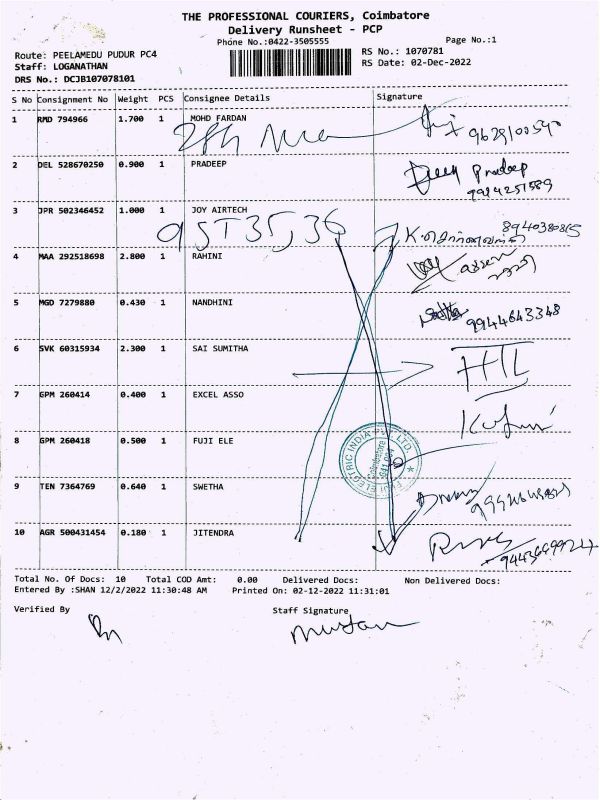 THE PROFESSIONAL COURIERS, Coimbatore
Delivery Runsheet - PCP
Phone No.:0422-3505555
Page No.:1
Route: PEELAMEDU PUDUR PC4
RS No.: 1070781
Staff: LOGANATHAN
RS Date: 02-Dec-2022
DRS No.: DCJB107078101
S No Consignment No Weight PCS Consignee Details Signature
1 RMD 794966 1.700 1 MOHD FARDAN
2 DEL 528670250 0.900 1 PRADEEP Pradeep
3 JPR 502346452 1.000 1 JOY AIRTECH 8940380815
4 MAA 292518698 2.800 1 RAHINI
5 MGD 7279880 0.430 1 NANDHINI 9944643348
6 SVK 60315934 2.300 1 SAI SUMITHA
7 GPM 260414 0.400 1 EXCEL ASSO
8 GPM 260418 0.500 1 FUJI ELE
ELECTRIC INDIA PVT. LTD.
Coimbatore
9 TEN 7364769 0.640 1 SWETHA
10 AGR 500431454 0.180 1 JITENDRA
Total No. Of Docs: 10 Total COD Amt: 0.00 Delivered Docs: Non Delivered Docs:
Entered By :SHAN 12/2/2022 11:30:48 AM Printed On: 02-12-2022 11:31:01
Verified By Staff Signature